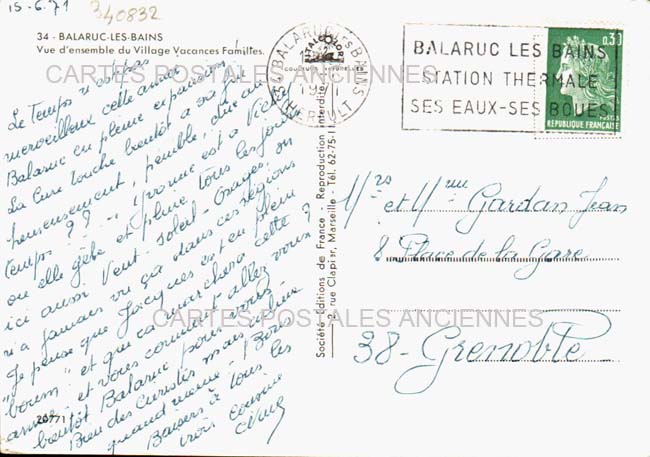 15-6.71
340832
34 - BALARUC-LES-BAINS
Vue d'ensemble du Village Vacances Familles.
Le Temps n'est pas
merveilleux cette année
Balaruc en pleine expansion
La Cure touche bientôt à sa fin
heureusement, pénible, due au
temps ?? - Yvonne est à Vichy
ou elle gèle et pleure tous les jours
ici aussi Vent - Soleil - Orages, on
n'a jamais vu ça dans ces régions
Je pense que Jacques est en plein
"boum" et que ça marchera cette
année et vous comment allez vous ?
bientôt Balaruc pour vous
Bien des Curistes mais
quand même - 1 Bons
Baisers à tous les
trois cousine
20771
Société Editions de France - Reproduction interdite
2, rue Clapier, Marseille - Tél. 62-75-11
COULEURS NATURELLES
34 BALARUC LES BAINS
HERAULT
BALARUC LES BAINS
STATION THERMALE
SES EAUX-SES BOUES
0,30
POSTES
REPUBLIQUE FRANÇAISE
Mrs et Mme Gardan Jean
8 Place de la Gare
38 - Grenoble
CARTES POSTALES ANCIENNES
CARTES POSTALES ANCIENNES